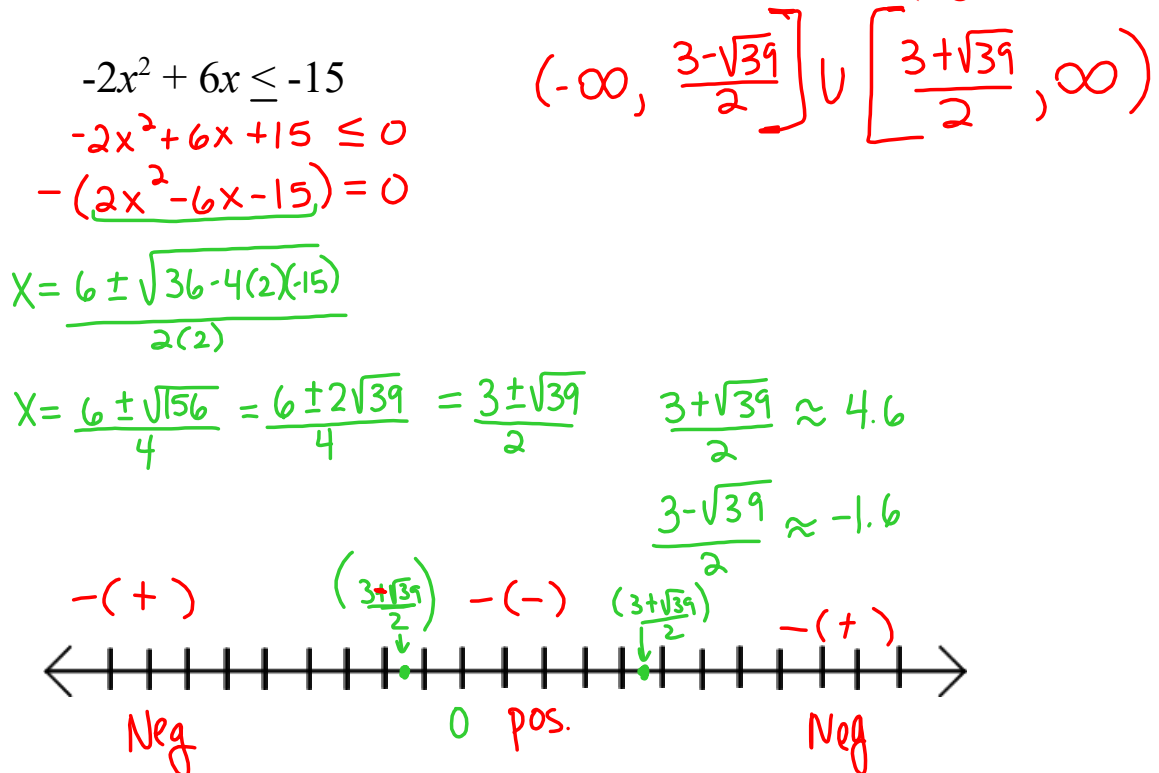 -2x² + 6x ≤ -15
(-∞, (3-√39)/2] ∪ [(3+√39)/2, ∞)
-2x² + 6x + 15 ≤ 0
-(2x² - 6x - 15) = 0
X = (6 ± √(36-4(2)(-15)))/(2(2))
X = (6 ± √156)/4 = (6 ± 2√39)/4 = (3 ± √39)/2
(3+√39)/2 ≈ 4.6
(3-√39)/2 ≈ -1.6
-(+) ((3-√39)/2) -(-) ((3+√39)/2) -(+)
Neg 0 pos. Neg